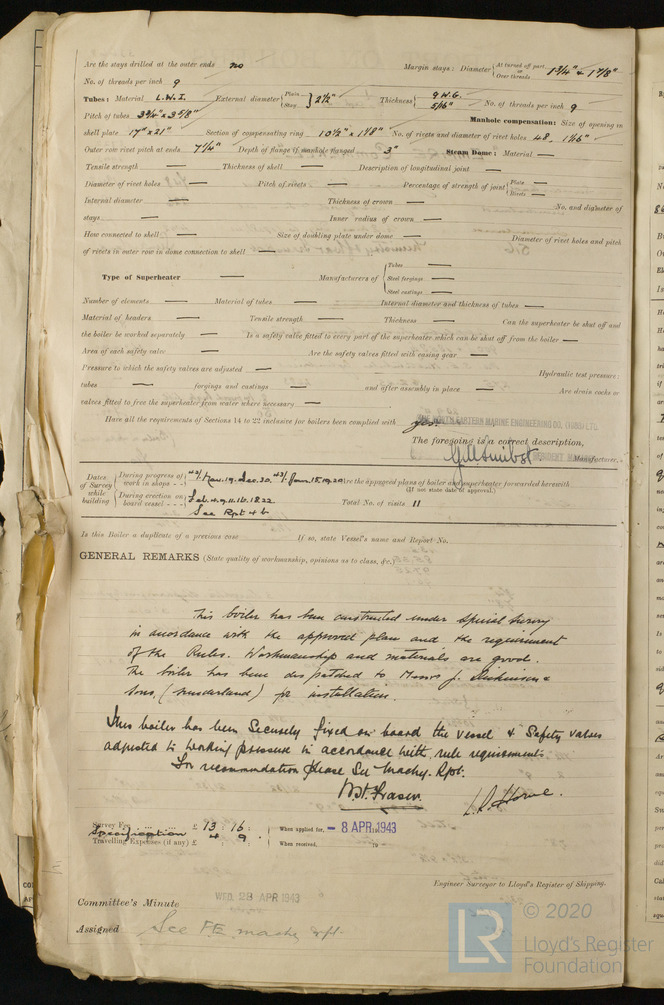 Are the stays drilled at the outer ends no Margin stays: Diameter { At turned off part, or Over threads 1 3/4" & 1 7/8"
No. of threads per inch 9
Tubes: Material L.W.I. External diameter { Plain Stay } 2 1/2" Thickness { 9 W.G. 5/16" No. of threads per inch 9
Pitch of tubes 3 3/4" x 3 5/8" Manhole compensation: Size of opening in
shell plate 17" x 21" Section of compensating ring 10 1/2" x 1 1/8" No. of rivets and diameter of rivet holes 48, 1 1/16"
Outer row rivet pitch at ends 7 1/4" Depth of flange if manhole flanged 3" Steam Dome: Material —
Tensile strength — Thickness of shell — Description of longitudinal joint —
Diameter of rivet holes — Pitch of rivets — Percentage of strength of joint { Plate — Rivets —
Internal diameter — Thickness of crown — No. and diameter of
stays — Inner radius of crown —
How connected to shell — Size of doubling plate under dome — Diameter of rivet holes and pitch
of rivets in outer row in dome connection to shell —
Type of Superheater — Manufacturers of { Tubes — Steel forgings — Steel castings —
Number of elements — Material of tubes — Internal diameter and thickness of tubes —
Material of headers — Tensile strength — Thickness — Can the superheater be shut off and
the boiler be worked separately — Is a safety valve fitted to every part of the superheater which can be shut off from the boiler —
Area of each safety valve — Are the safety valves fitted with easing gear —
Pressure to which the safety valves are adjusted — Hydraulic test pressure:
tubes — forgings and castings — and after assembly in place — Are drain cocks or
valves fitted to free the superheater from water where necessary —
Have all the requirements of Sections 14 to 22 inclusive for boilers been complied with yes.
THE NORTH EASTERN MARINE ENGINEERING CO. (1938) LTD.
The foregoing is a correct description,
Manufacturer.
Dates of Survey while building { During progress of work in shops - - 42/ Nov. 19. Dec. 30. 43/ Jan. 15, 19, 20 Are the approved plans of boiler and superheater forwarded herewith
(If not state date of approval.)
During erection on board vessel - - - Feb. 4. 9. 11. 16. 18. 22 Total No. of visits 11
See Rpt 4b
Is this Boiler a duplicate of a previous case If so, state Vessel's name and Report No.
GENERAL REMARKS (State quality of workmanship, opinions as to class, &c.)
This boiler has been constructed under Special Survey
in accordance with the approved plan and the requirement
of the Rules. Workmanship and materials are good.
The boiler has been dispatched to Messrs J. Dickinson &
Sons, (Sunderland) for installation.
This boiler has been Securely fixed on board the vessel & Safety valves
adjusted to working pressure in accordance with rule requirements
For recommendation please See Machy. Rpt.
W. H. Fraser L. R. Horne.
Survey Fee ... ... £ 13 : 16 : When applied for, – 8 APR 1943
Specification 4 . 9 .
Travelling Expenses (if any) £ : : When received, 19
Engineer Surveyor to Lloyd's Register of Shipping.
Committee's Minute WED. 28 APR 1943
Assigned See F.E. machy rpt.
LR © 2020
Lloyd's Register
Foundation